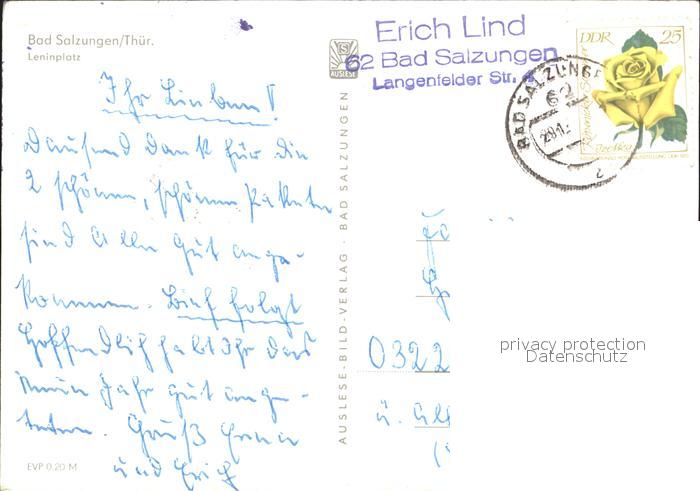 Bad Salzungen/Thür.
Leninplatz
Erich Lind
62 Bad Salzungen
Langenfelder Str.
DDR 25
BAD SALZUNGE
62
AUSLESE
AUSLESE-BILD-VERLAG · BAD SALZUNGEN
Ihr Lieben!
Tausend Dank für die
2 schönen, schönen Pakete
sind alle gut ange-
kommen. Brief folgt
Hoffendlich habt Ihr das
neue Jahr gut ange-
treten. Gruß Erna
und Erich
0322
u. All
privacy protection
Datenschutz
EVP 0,20 M